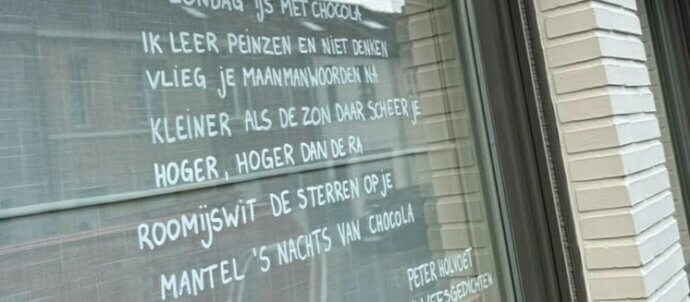 ZONDAG IJS MET CHOCOLA
IK LEER PEINZEN EN NIET DENKEN
VLIEG JE MAANMANWOORDEN NA
KLEINER ALS DE ZON DAAR SCHEER JE
HOGER, HOGER DAN DE RA
ROOMIJSWIT DE STERREN OP JE
MANTEL 'S NACHTS VAN CHOCOLA
PETER HOLVOET